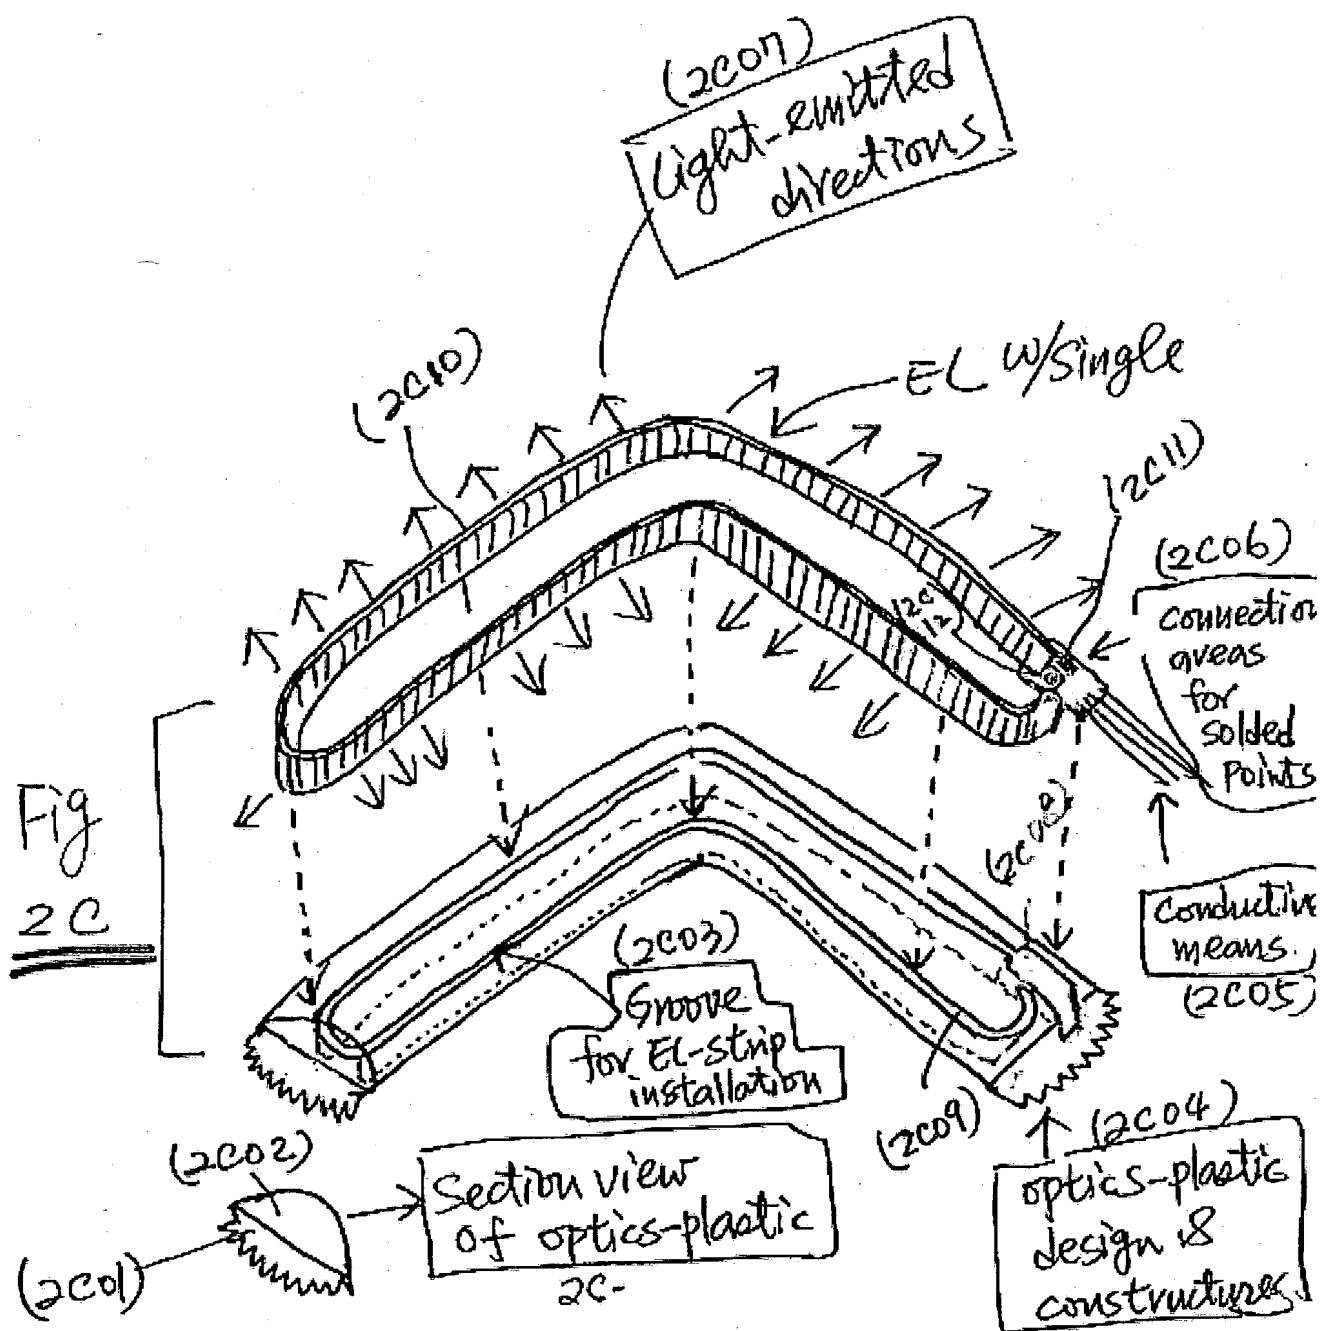 (2C07)
Light-emitted
directions
(2C10)
EL W/Single
(2C11)
(2C06)
connection
areas
for
solded
points
(2C
12)
Fig
2C
(2C08)
conductive
means.
(2C05)
(2C03)
Groove
for EL-strip
installation
(2C09)
(2C04)
optics-plastic
design &
constructures.
(2C02)
Section view
of optics-plastic
2C-
(2C01)